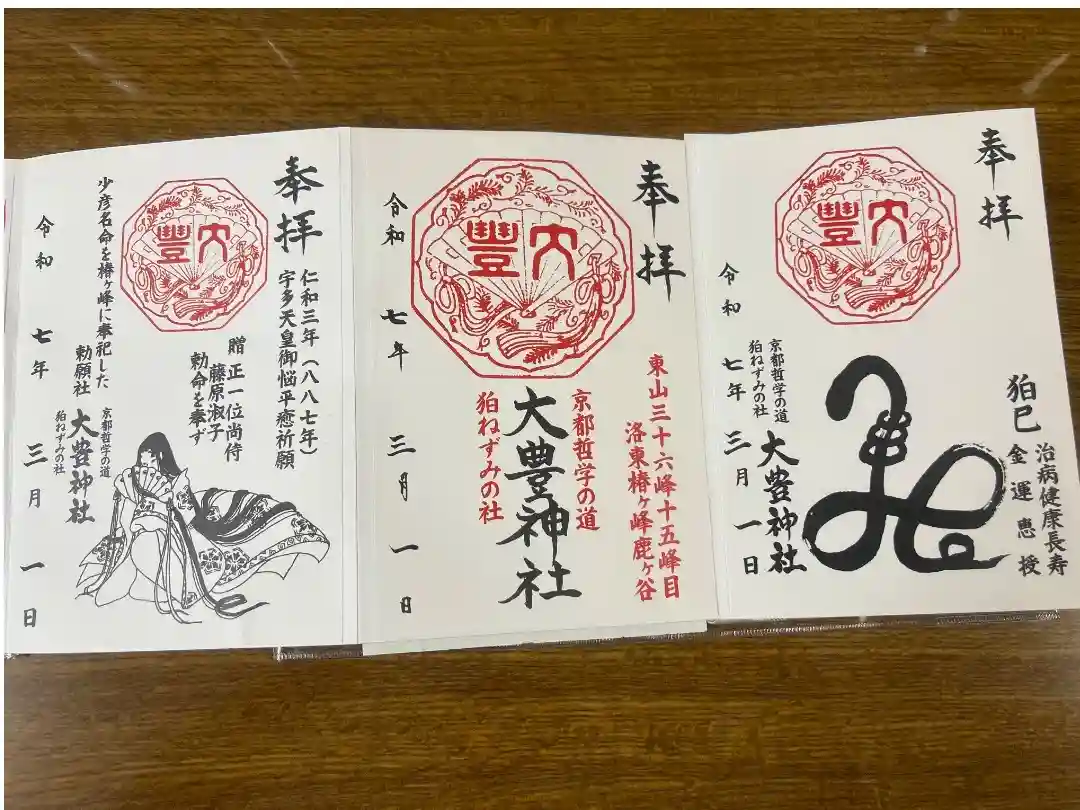 奉拝
狛巳
治病健康長寿
金運恵授
大豐
京都哲学の道
狛ねずみの社
大豊神社
令和七年三月一日
奉拝
東山三十六峰十五峰目
洛東椿ヶ峰鹿ヶ谷
大豐
京都哲学の道
大豊神社
狛ねずみの社
令和七年三月一日
奉拝
仁和三年（八八七年）
宇多天皇御悩平癒祈願
贈正一位尚侍
藤原淑子
勅命を奉ず
大豐
少彦名命を椿ヶ峰に奉祀した
勅願社
京都哲学の道
狛ねずみの社
大豊神社
令和七年三月一日